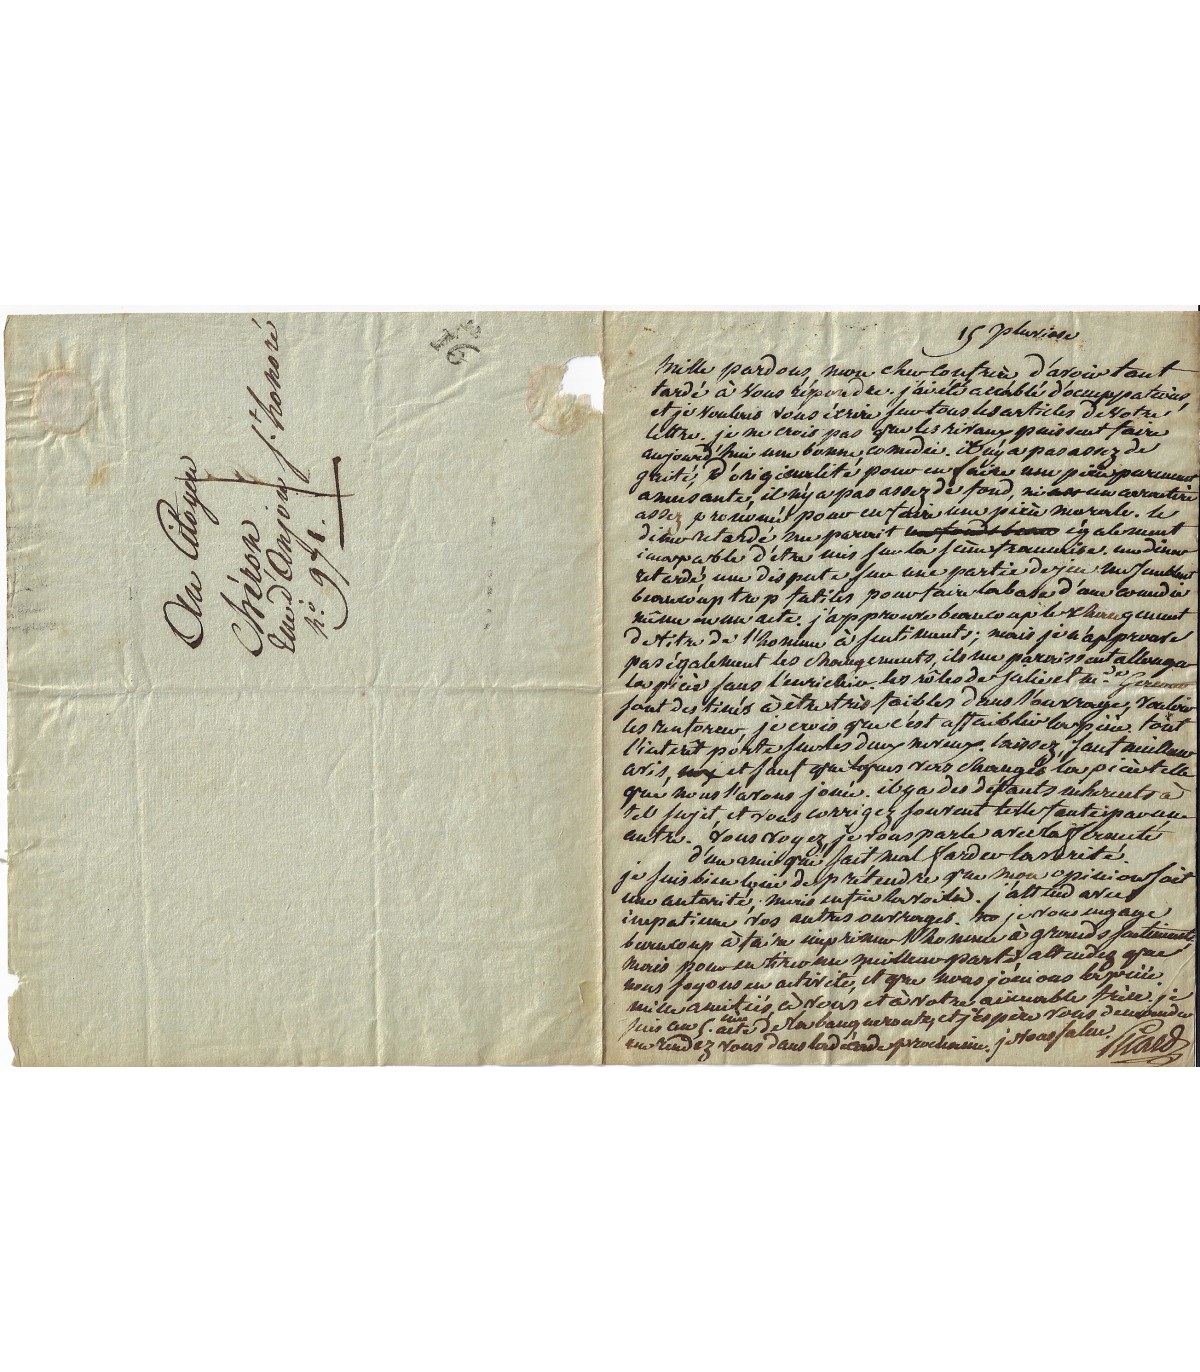 Au Citoyen
Chéron
Rue d'Anjou St. honoré
n.° 971.
15 pluviose
Mille pardons, mon cher confrère d'avoir tant
tardé à vous répondre. j'ai été accablé d'occupations,
et je voulois vous écrire sur tous les articles de votre
lettre. je ne crois pas que les rivaux puissent faire
aujourd'hui une bonne comédie. il n'y a pas assez de
gaité, d'originalité pour en faire une pièce purement
amusante, il n'y a pas assez de fond, ni un caractère
assez prononcé pour en faire une pièce morale. le
diner retardé me paroit un fonds beau également
incapable d'être mis sur la scène françoise. un diner
retardé, une dispute sur une partie de jeu me semblent
beaucoup trop futiles pour faire la base d'une comédie
même en un acte. j'approuve beaucoup le changement
de titre de l'homme à sentiments; mais je n'approuve
pas également les changements, ils me paroissent allonger
la pièce sans l'enrichir. les rôles de julie et Mde
sont destinés à être très faibles dans l'ouvrage, vouloir
les renforcer, je crois que c'est affaiblir la pièce. tout
l'intérêt porte sur les deux neveux. laissez, sauf meilleur
avis, et sauf quelques vers changés la pièce telle
que nous l'avons jouée. il y a des défauts inhérents à
tel sujet, et vous corrigez souvent telle faute par une
autre. Vous voyez, je vous parle avec la fermeté
d'un ami qui sait mal farder la vérité.
je suis bien loin de prétendre que mon opinion soit
une autorité, mais enfin la voilà. j'attend avec
impatience vos autres ouvrages. je vous engage
beaucoup à faire imprimer l'homme à grands sentiments
mais pour en tirer un meilleur parti, attendez que
nous soyons en activité, et que nous jouions la pièce.
mille amitiés à vous et à votre aimable frère. je
suis au 5.me acte de la banqueroute, et j'espère vous demander
un rendez vous dans la décade prochaine. je vous salue.
Picard